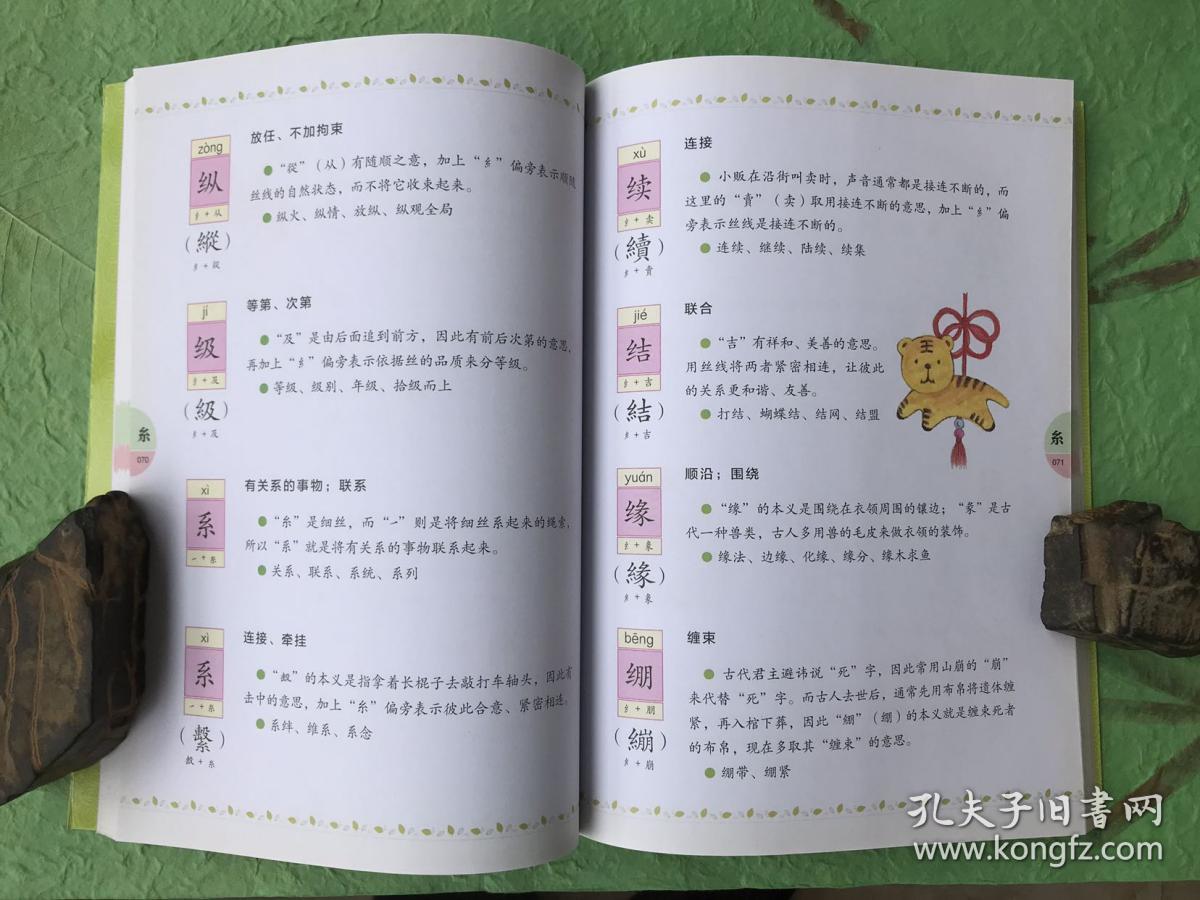 zòng
纵
纟+从
(縱)
糹+從
放任、不加拘束
“從”（从）有随顺之意，加上“糹”偏旁表示顺随
丝线的自然状态，而不将它收束起来。
纵火、纵情、放纵、纵观全局
jí
级
纟+及
(級)
糹+及
等第、次第
“及”是由后面追到前方，因此有前后次第的意思，
再加上“糹”偏旁表示依据丝的品质来分等级。
等级、级别、年级、拾级而上
糸
070
xì
系
㇀+糸
有关系的事物；联系
“糸”是细丝，而“㇀”则是将细丝系起来的绳索，
所以“系”就是将有关系的事物联系起来。
关系、联系、系统、系列
xì
系
㇀+糸
(繫)
糸
连接、牵挂
”的本义是指拿着长棍子去敲打车轴头，因此有
击中的意思，加上“糸”偏旁表示彼此合意、紧密相连。
系绊、维系、系念
xù
续
纟+卖
(續)
糹+賣
连接
小贩在沿街叫卖时，声音通常都是接连不断的，而
这里的“賣”（卖）取用接连不断的意思，加上“糹”偏
旁表示丝线是接连不断的。
连续、继续、陆续、续集
jié
结
纟+吉
(結)
糹+吉
联合
“吉”有祥和、美善的意思。
用丝线将两者紧密相连，让彼此
的关系更和谐、友善。
打结、蝴蝶结、结网、结盟
王
糸
071
yuán
缘
纟+彖
(緣)
糹+彖
顺沿；围绕
“缘”的本义是围绕在衣领周围的镶边；“彖”是古
代一种兽类，古人多用兽的毛皮来做衣领的装饰。
缘法、边缘、化缘、缘分、缘木求鱼
bēng
绷
纟+朋
(繃)
糹+崩
缠束
古代君主避讳说“死”字，因此常用山崩的“崩”
来代替“死”字。而古人去世后，通常先用布帛将遗体缠
紧，再入棺下葬，因此“繃”（绷）的本义就是缠束死者
的布帛，现在多取其“缠束”的意思。
绷带、绷紧
孔夫子旧书网
www.kongfz.com